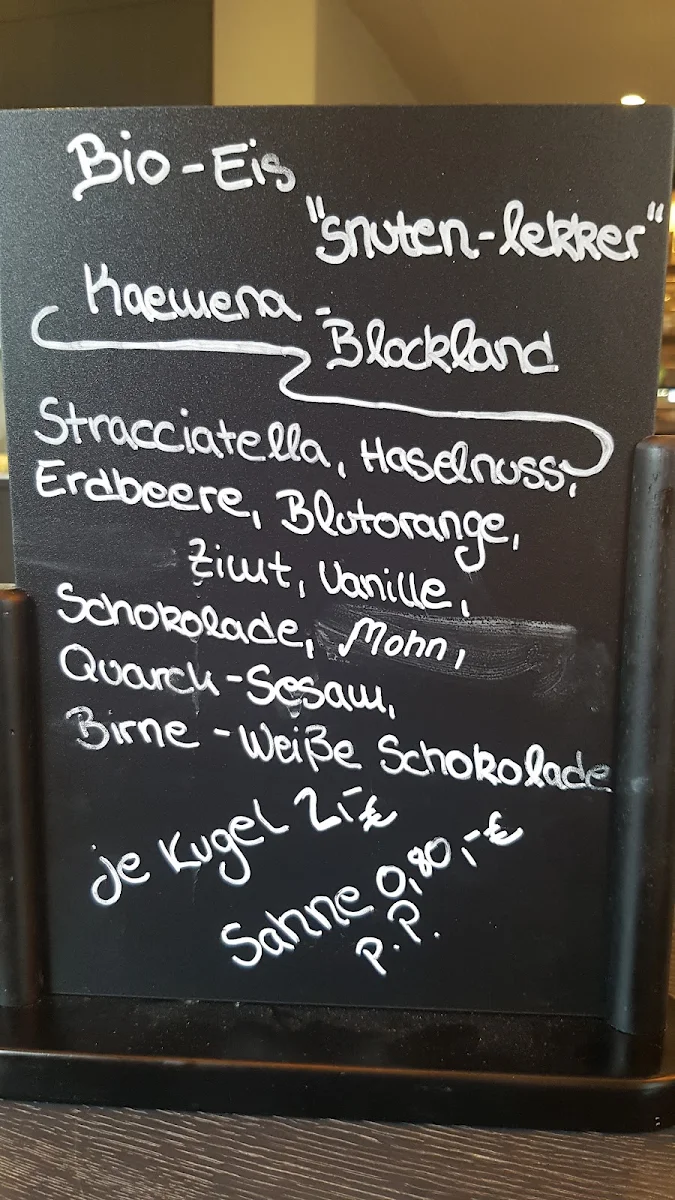 Bio-Eis
"snuten-lekker"
Kaemena-
Blockland
Stracciatella, Haselnuss,
Erdbeere, Blutorange,
Zimt, Vanille,
Schokolade, Mohn,
Quarck-Sesam,
Birne-Weiße Schokolade
je Kugel 2,-€
Sahne 0,80,-€
p.P.